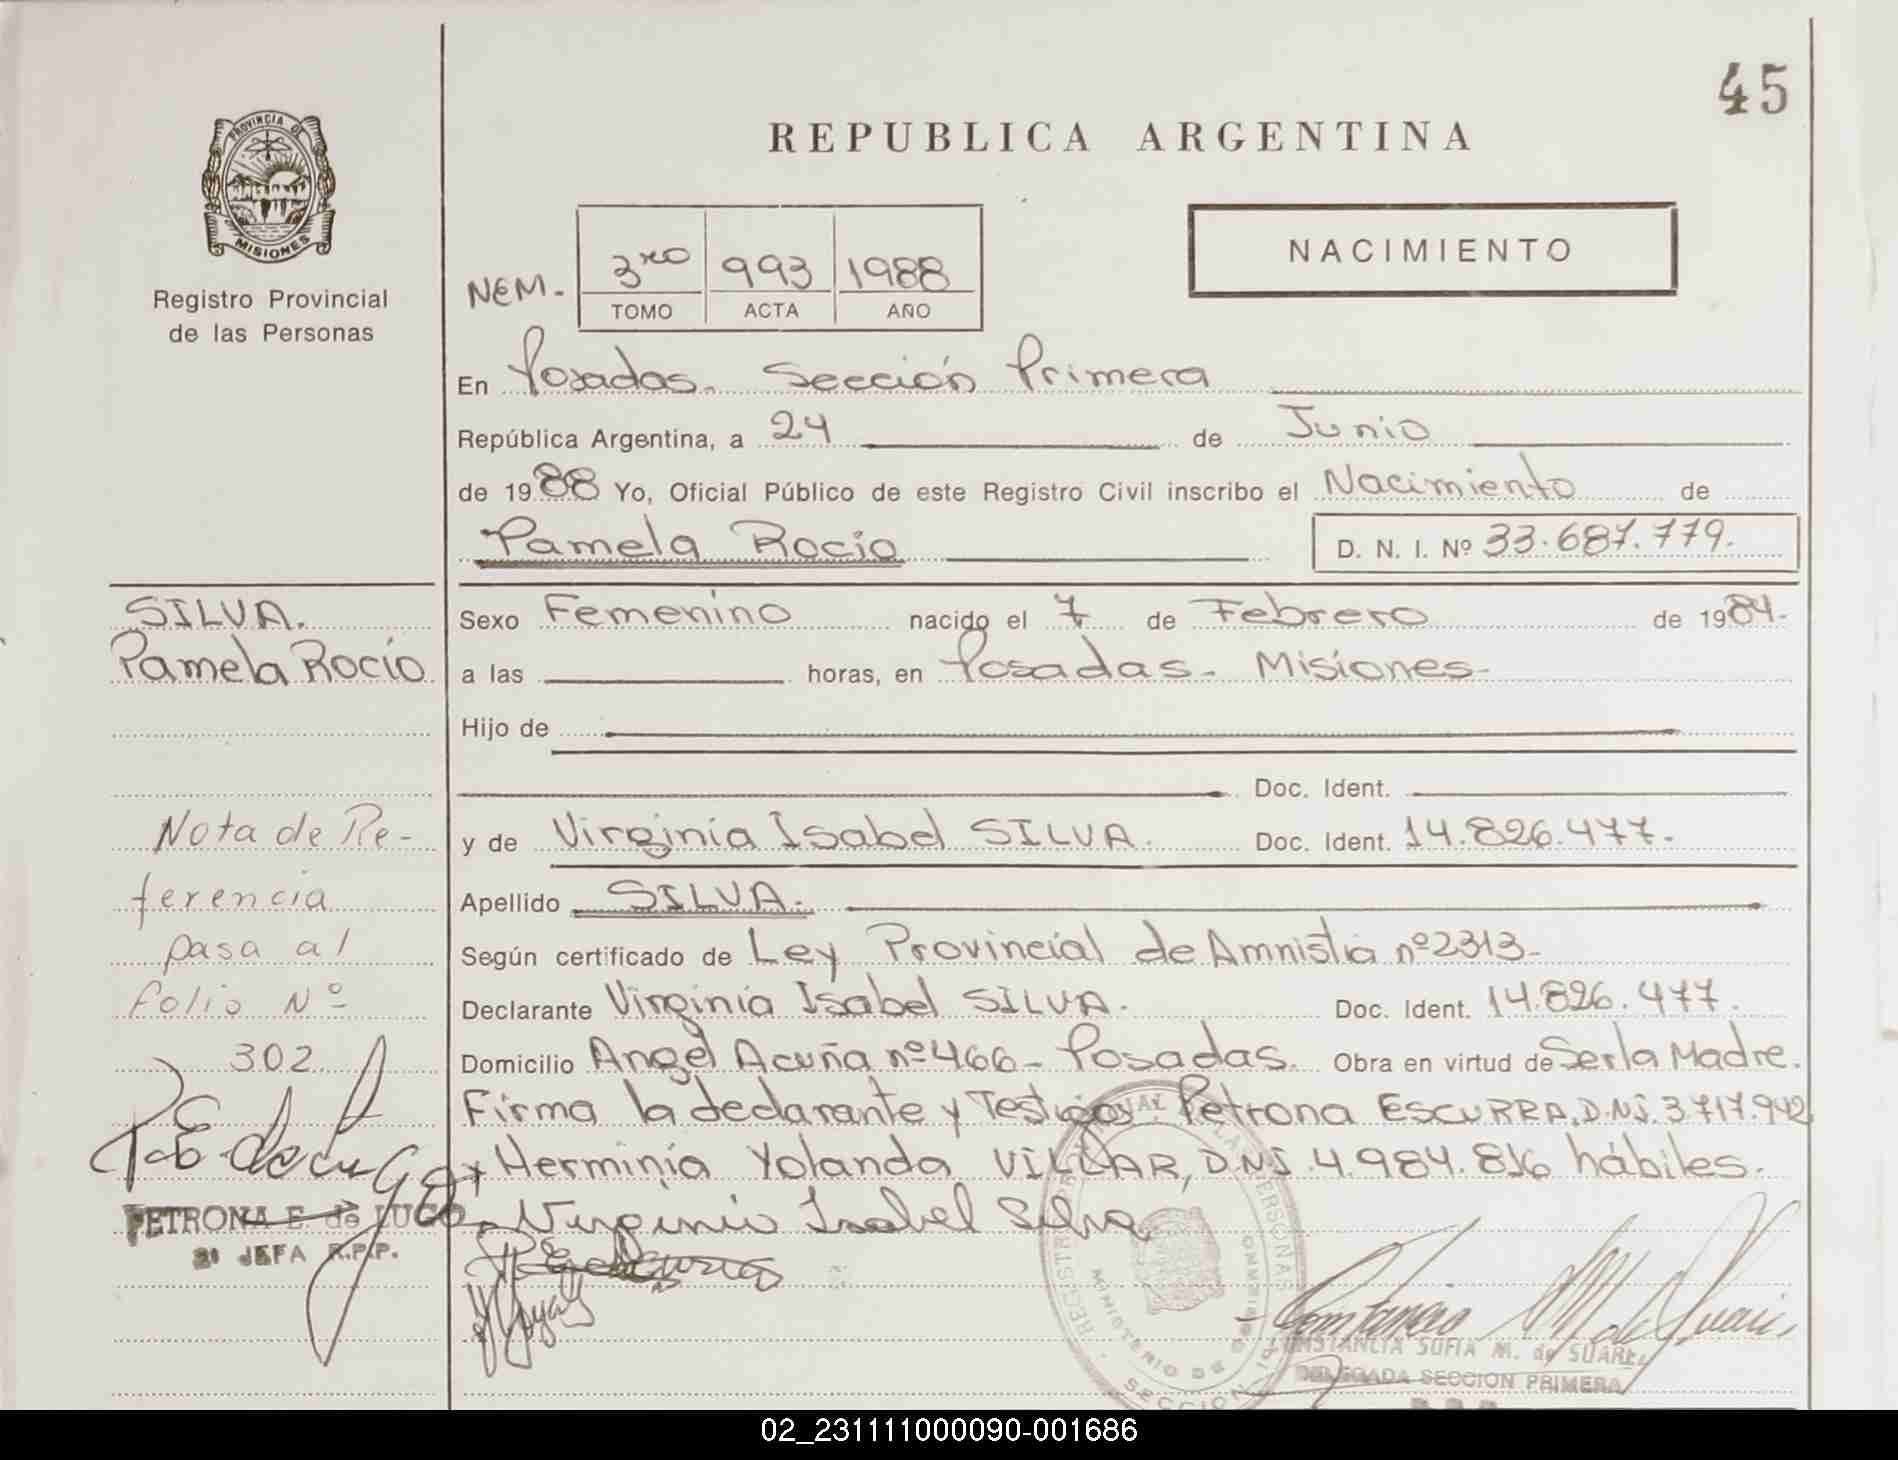 45
PROVINCIA DE
MISIONES
Registro Provincial
de las Personas
REPUBLICA ARGENTINA
NACIMIENTO
NEM. 3ro 993 1988
TOMO ACTA AÑO
En Posadas. Sección Primera
República Argentina, a 24 de Junio
de 1988 Yo, Oficial Público de este Registro Civil inscribo el Nacimiento de
Pamela Rocío D. N. I. Nº 33.687.779.
SILVA.
Pamela Rocío
Sexo Femenino nacido el 7 de Febrero de 1984-
a las horas, en Posadas- Misiones-
Hijo de
Doc. Ident.
y de Virginia Isabel SILVA. Doc. Ident. 14.826.477.
Apellido SILVA.
Según certificado de Ley Provincial de Amnistía nº2313-
Declarante Virginia Isabel SILVA. Doc. Ident. 14.826.477.
Domicilio Angel Acuña nº466- Posadas. Obra en virtud de Ser la Madre.
Firma la declarante y Testigos: Petrona ESCURRA, D.N.I. 3.717.942
y Herminia Yolanda VILLAR, D.N.I. 4.984.816 hábiles.
Virginia Isabel Silva
Nota de Re-
ferencia
pasa al
folio Nº
302
PETRONA E. de LUGO
2ª JEFA R.P.P.
CONSTANCIA SOFIA M. de SUAREZ
DELEGADA SECCION PRIMERA
MINISTERIO DE GOBIERNO
SECCION
02_231111000090-001686